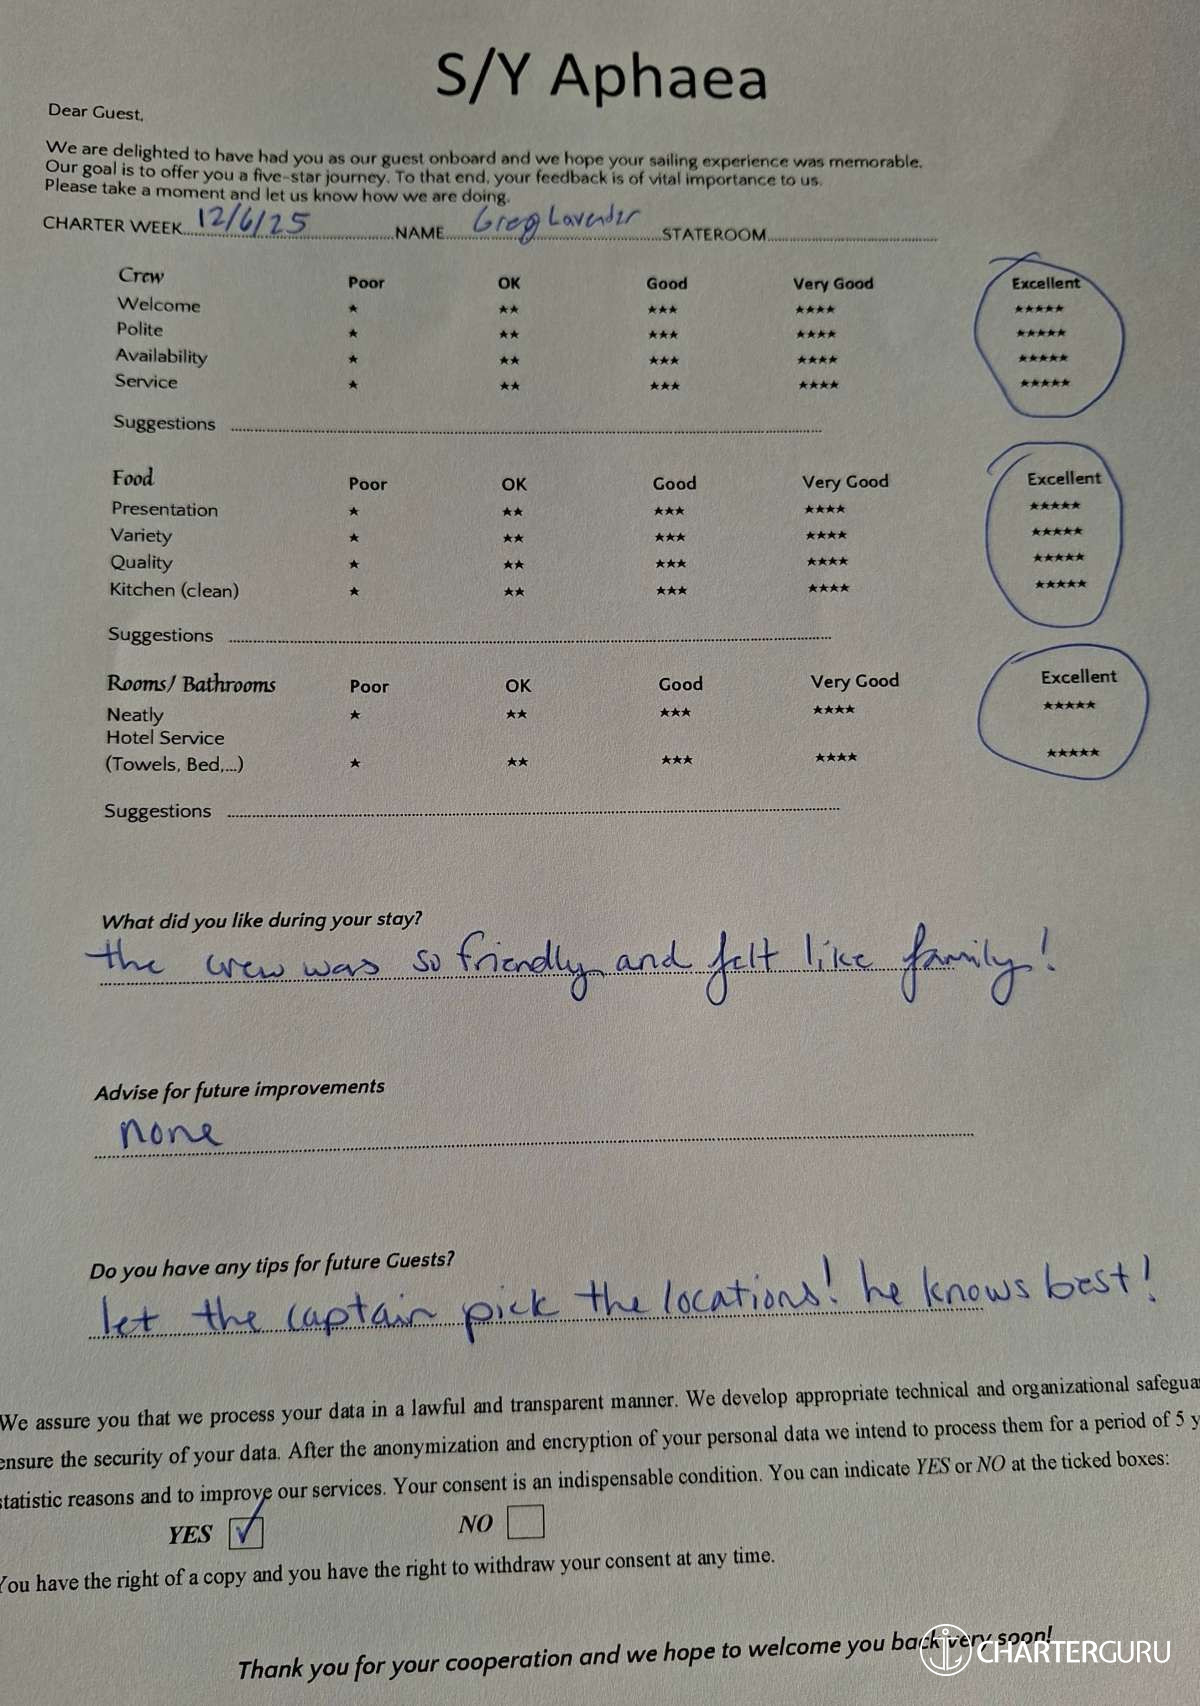 S/Y Aphaea
Dear Guest,
We are delighted to have had you as our guest onboard and we hope your sailing experience was memorable.
Our goal is to offer you a five-star journey. To that end, your feedback is of vital importance to us.
Please take a moment and let us know how we are doing.
CHARTER WEEK 12/6/25 NAME Greg Lavender STATEROOM
Crew Poor OK Good Very Good Excellent
Welcome ★ ★★ ★★★ ★★★★ ★★★★★
Polite ★ ★★ ★★★ ★★★★ ★★★★★
Availability ★ ★★ ★★★ ★★★★ ★★★★★
Service ★ ★★ ★★★ ★★★★ ★★★★★
Suggestions
Food Poor OK Good Very Good Excellent
Presentation ★ ★★ ★★★ ★★★★ ★★★★★
Variety ★ ★★ ★★★ ★★★★ ★★★★★
Quality ★ ★★ ★★★ ★★★★ ★★★★★
Kitchen (clean) ★ ★★ ★★★ ★★★★ ★★★★★
Suggestions
Rooms/ Bathrooms Poor OK Good Very Good Excellent
Neatly ★ ★★ ★★★ ★★★★ ★★★★★
Hotel Service
(Towels, Bed,...) ★ ★★ ★★★ ★★★★ ★★★★★
Suggestions
What did you like during your stay?
the crew was so friendly and felt like family!
Advise for future improvements
none
Do you have any tips for future Guests?
let the captain pick the locations! he knows best!
We assure you that we process your data in a lawful and transparent manner. We develop appropriate technical and organizational safegua
ensure the security of your data. After the anonymization and encryption of your personal data we intend to process them for a period of 5 y
statistic reasons and to improve our services. Your consent is an indispensable condition. You can indicate YES or NO at the ticked boxes:
YES ✓ NO
You have the right of a copy and you have the right to withdraw your consent at any time.
Thank you for your cooperation and we hope to welcome you back very soon!
CHARTERGURU